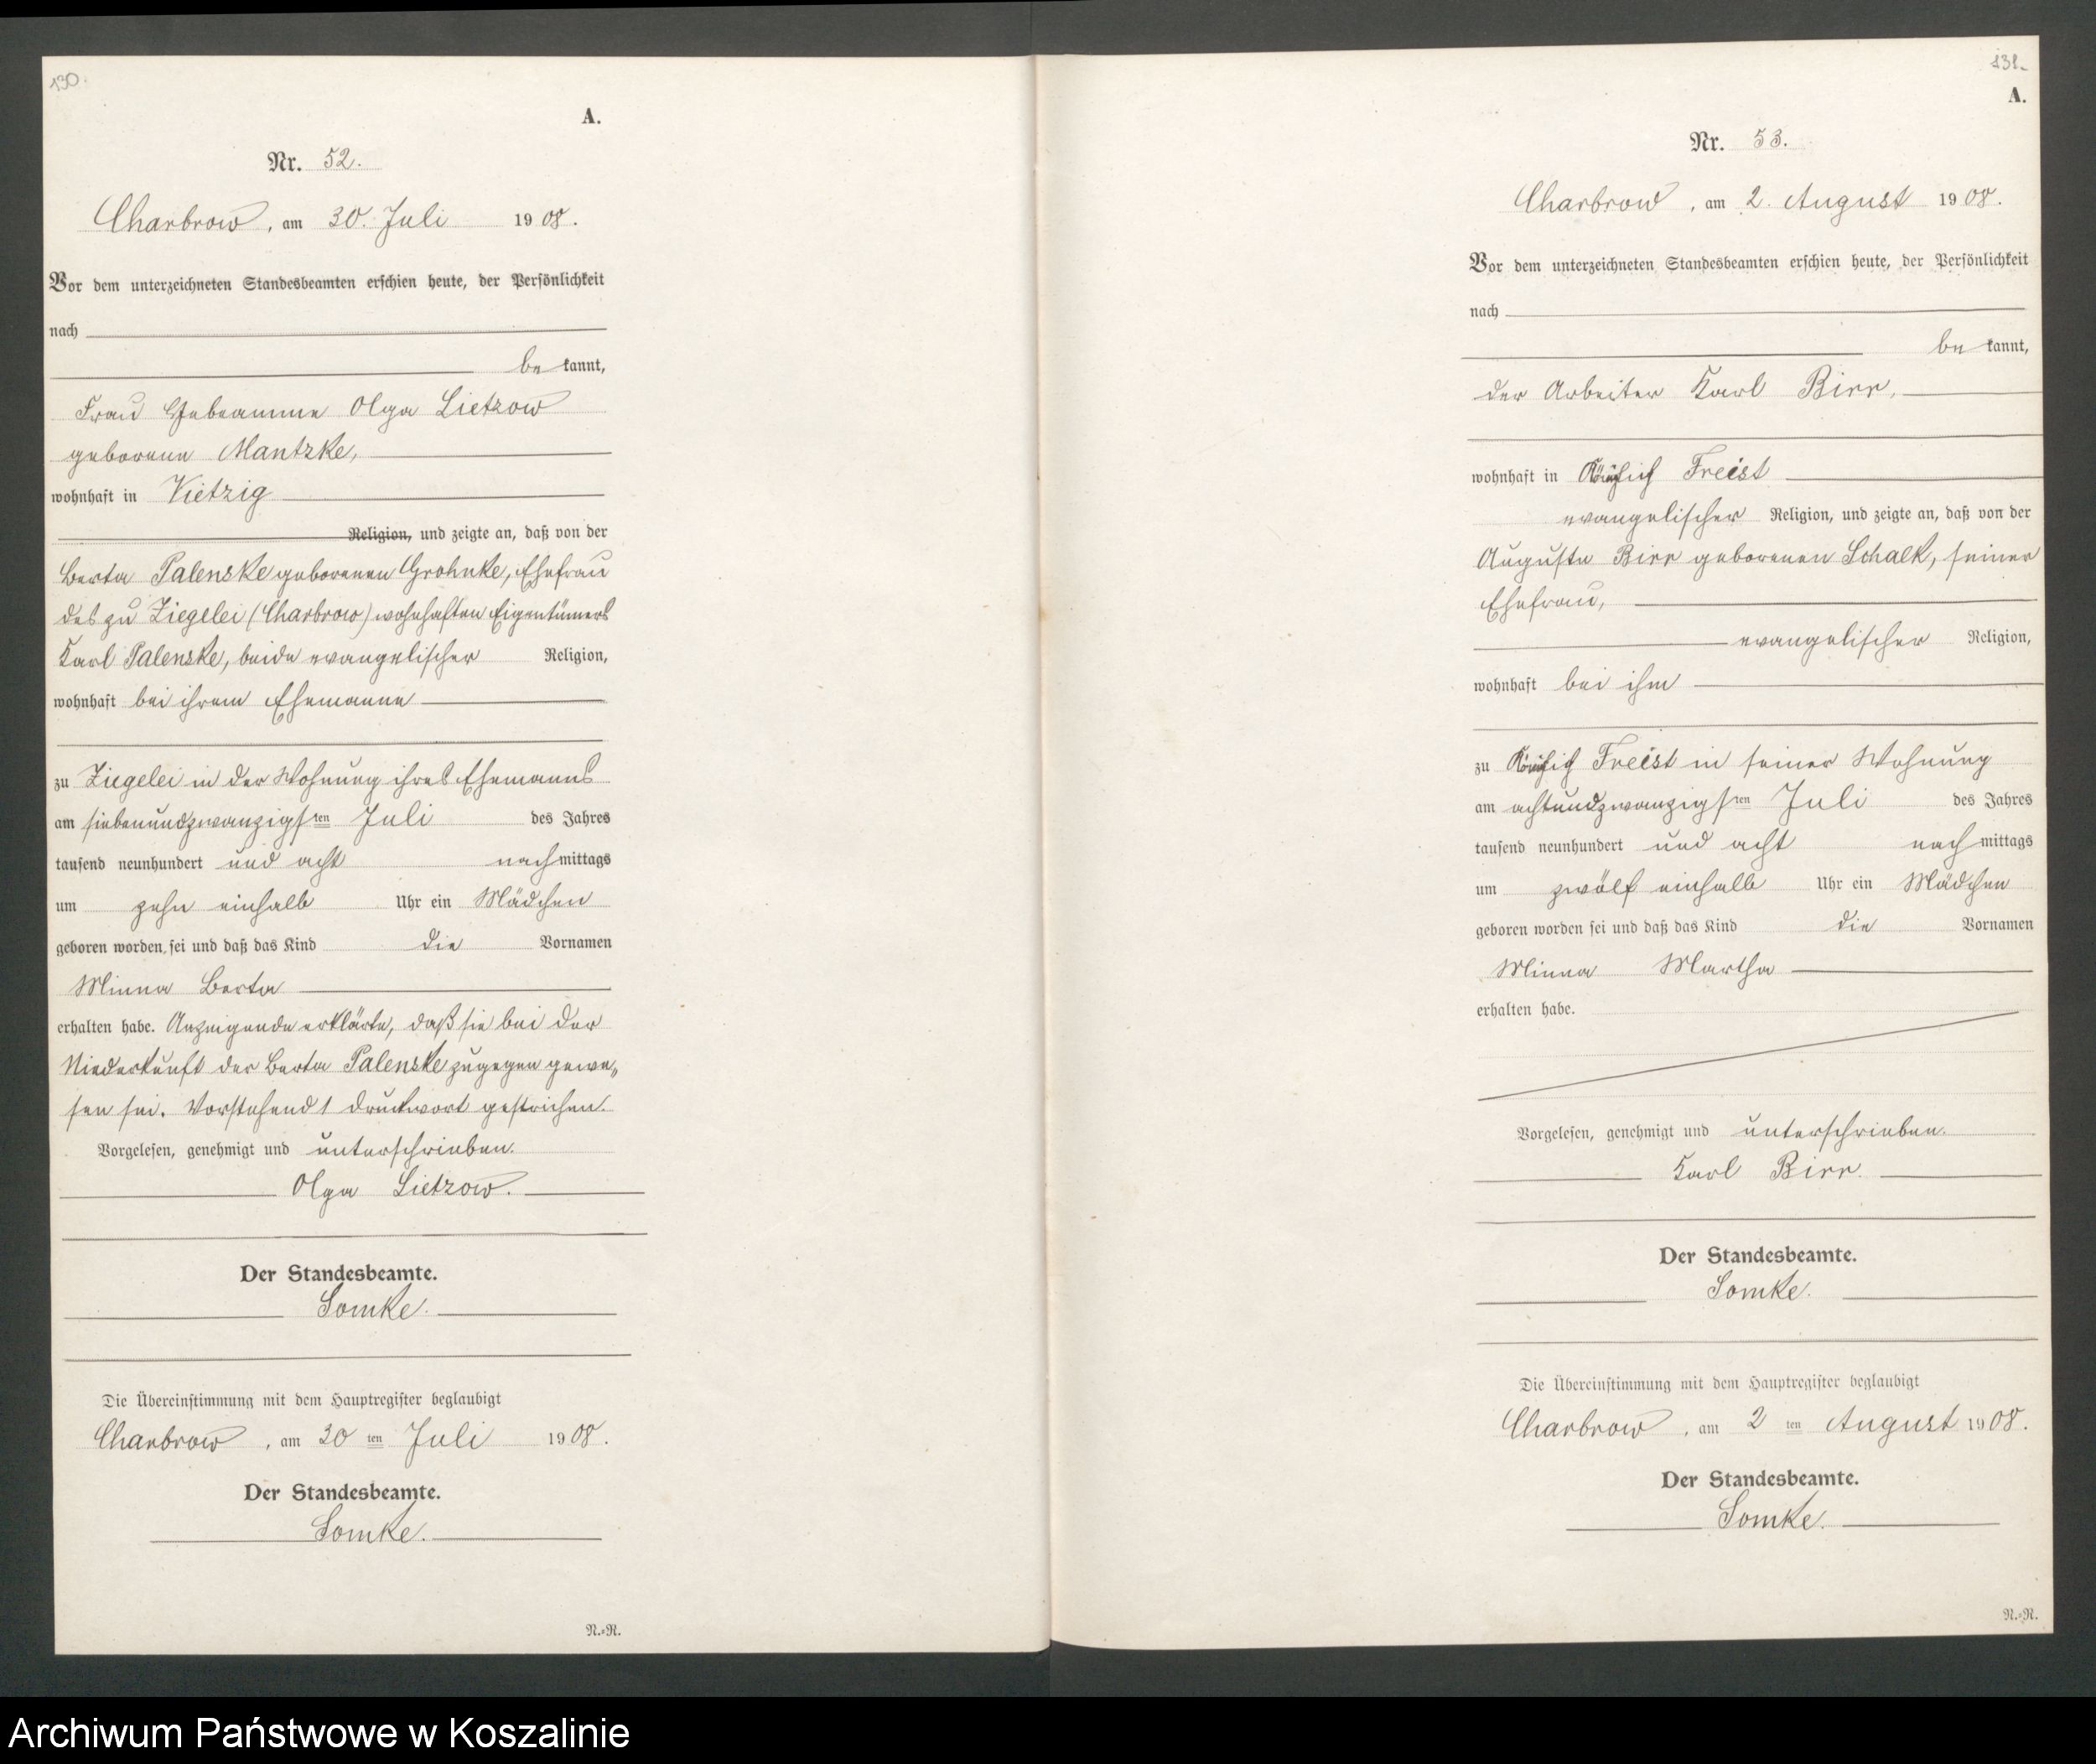 130.
A.
Nr. 52.
Charbrow, am 30. Juli 1908.
Vor dem unterzeichneten Standesbeamten erschien heute, der Persönlichkeit
nach
be kannt,
Frau Hebeamme Olga Lietzow
geborene Mantzke,
wohnhaft in Vietzig
Religion, und zeigte an, daß von der
Berta Palenske geborenen Grohnke, Ehefrau
des zu Ziegelei (Charbrow) wohnhaften Eigentümers
Karl Palenske, beide evangelischer Religion,
wohnhaft bei ihrem Ehemanne
zu Ziegelei in der Wohnung ihres Ehemanns
am siebenundzwanzigsten Juli des Jahres
tausend neunhundert und acht nachmittags
um zehn einhalb Uhr ein Mädchen
geboren worden sei und daß das Kind die Vornamen
Minna Berta
erhalten habe. Anzeigende erklärte, daß sie bei der
Niederkunft der Berta Palenske zugegen gewe„
sen sei. Vorstehend 1 Druckwort gestrichen.
Vorgelesen, genehmigt und unterschrieben.
Olga Lietzow.
Der Standesbeamte.
Lomke.
Die Übereinstimmung mit dem Hauptregister beglaubigt
Charbrow, am 30ten Juli 1908.
Der Standesbeamte.
Lomke.
N.=N.
131.
A.
Nr. 53.
Charbrow, am 2. August 1908.
Vor dem unterzeichneten Standesbeamten erschien heute, der Persönlichkeit
nach
be kannt,
der Arbeiter Karl Birr,
wohnhaft in Freist
evangelischer Religion, und zeigte an, daß von der
Auguste Birr geborenen Schalk, seiner
Ehefrau,
evangelischer Religion,
wohnhaft bei ihm
zu Freist in seiner Wohnung
am achtundzwanzigsten Juli des Jahres
tausend neunhundert und acht nachmittags
um zwölf einhalb Uhr ein Mädchen
geboren worden sei und daß das Kind die Vornamen
Minna Martha
erhalten habe.
Vorgelesen, genehmigt und unterschrieben.
Karl Birr.
Der Standesbeamte.
Lomke.
Die Übereinstimmung mit dem Hauptregister beglaubigt
Charbrow, am 2ten August 1908.
Der Standesbeamte.
Lomke.
N.=N.
Archiwum Państwowe w Koszalinie